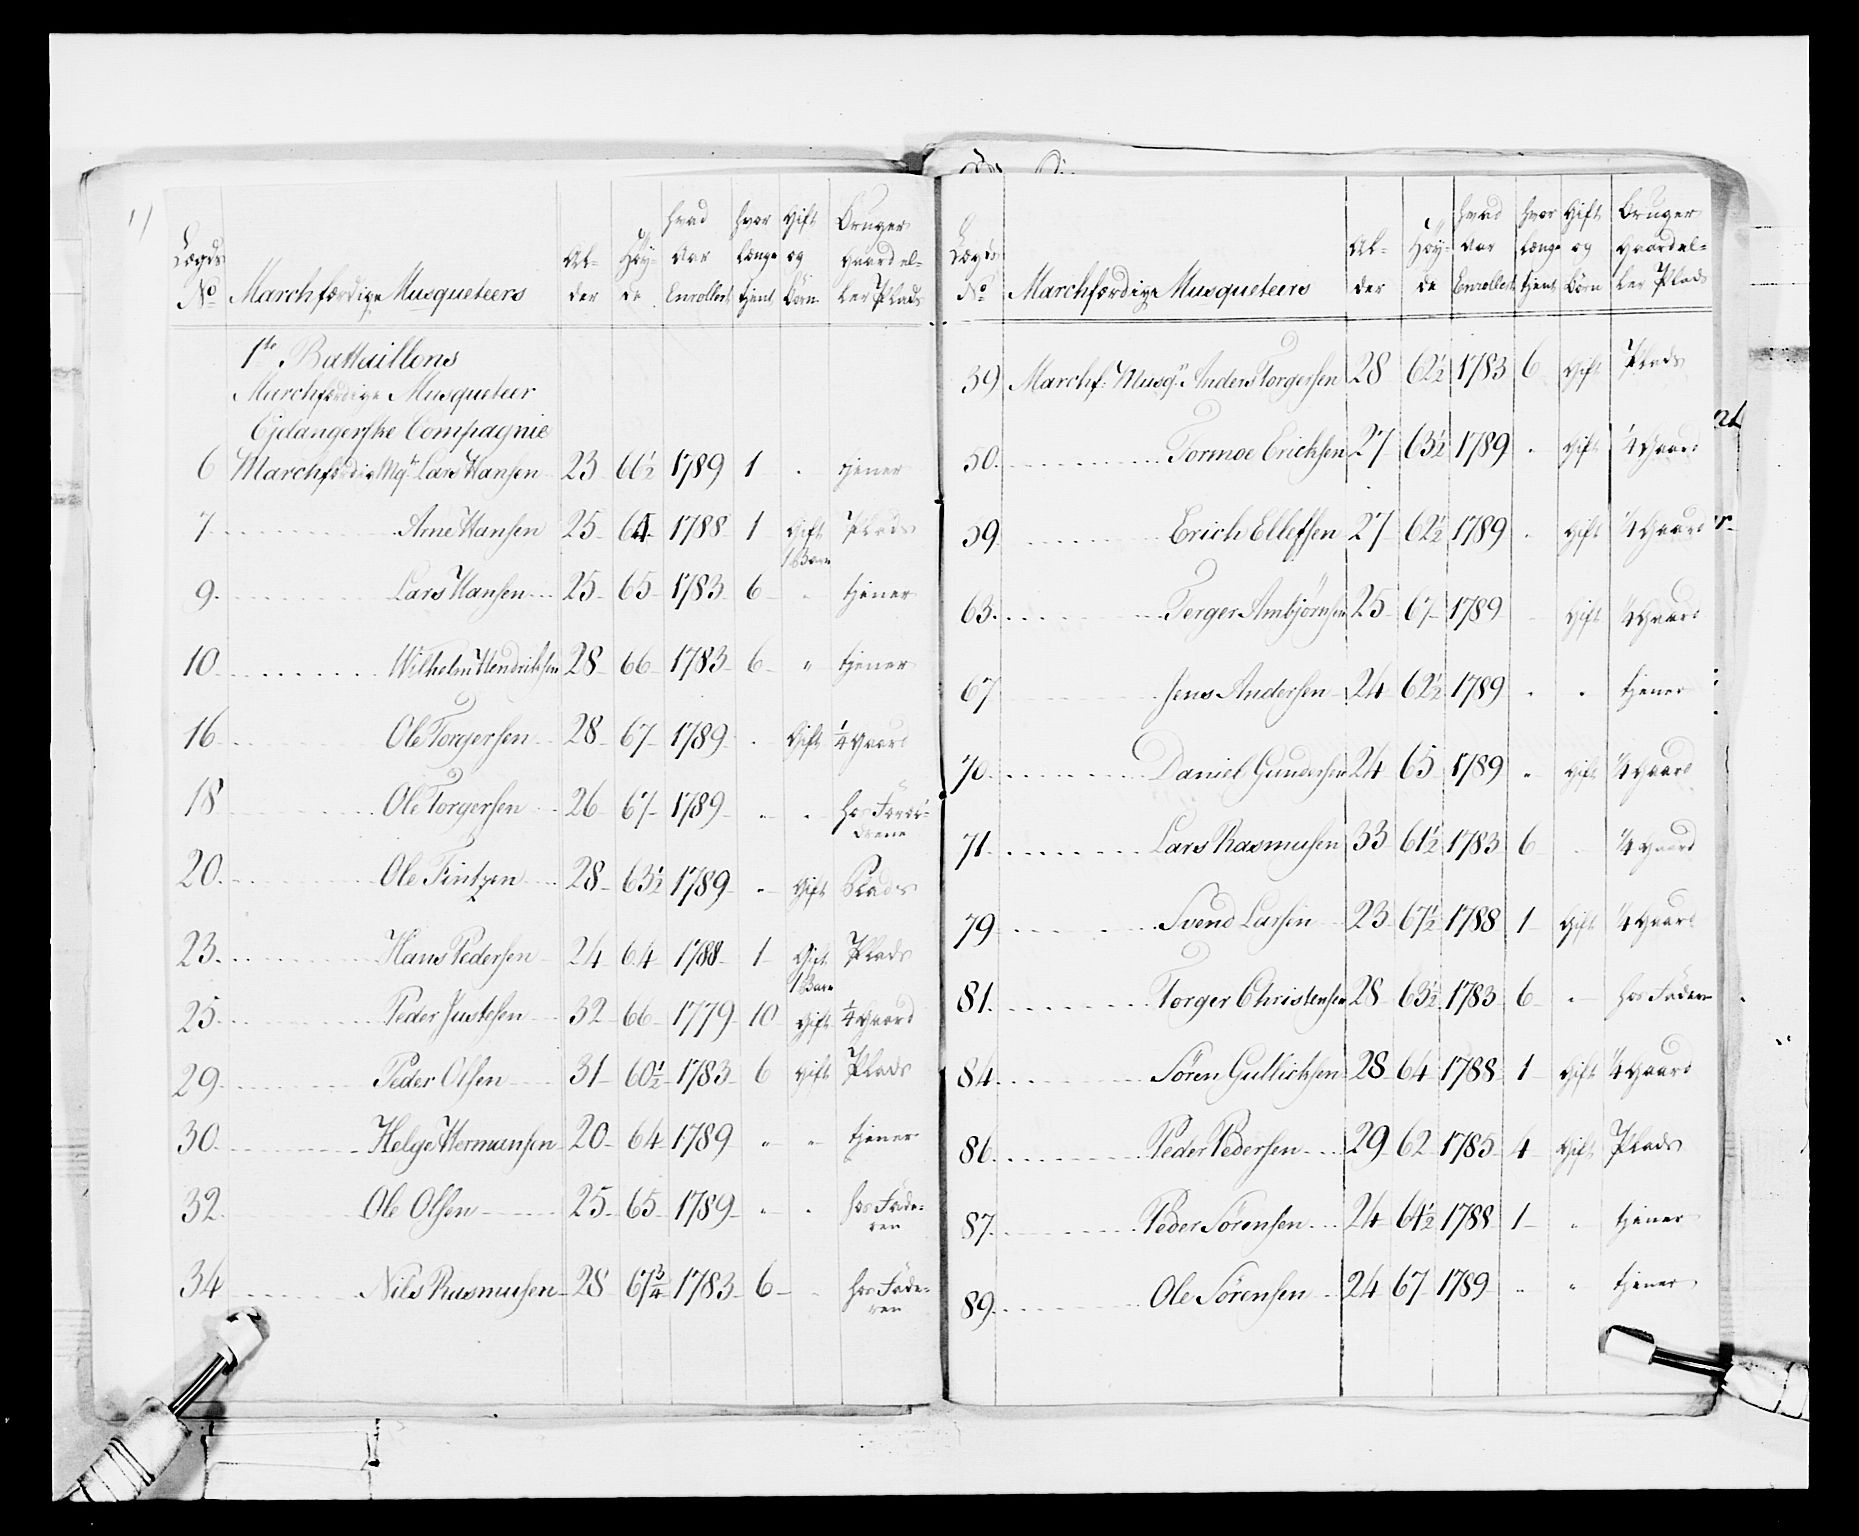 11
Lægds No | Marchfærdige Musqueteers | Al-der | Höy-de | hvad Aar Enrollert | hvor længe tjent | Gift og Börn | Bruger Gaard el-ler Plads
1te Battaillons
Marchfærdige Musqueteer
Ejdangerske Compagnie
6 Marchfærdig Mqr Lars Hansen 23 66½ 1789 1 . tjener
7 Arne Hansen 25 64 1788 1 Gift 1 Barn Plads
9. Lars Hansen 25 65 1783 6 tjener
10 Wilhelm Hendriksen 28 66 1783 6 " tjener
16 Ole Torgersen 28 67 1789 . Gift ¼ Gaard
18 Ole Torgersen 26 67 1789 " " hos Foræl-drene
20. Ole Tintzen 28 63½ 1789 " Gift Plads
23. Hans Pedersen 24 64 1788 1 Gift 1 Barn Plads
25 Peder Justesen 32 66 1779 10 Gift ¼ Gaard
29 Peder Olsen 31 60½ 1783 6 Gift Plads
30. Helge Hermansen 20 64 1789 " " tjener
32. Ole Olsen 25 65 1789 " " hos Fade-ren
34 Nils Rasmusen 28 67¾ 1783 6 hos Fade-ren
Lægds No | Marchfærdige Musqueteers | Al-der | Höy-de | hvad Aar Enrollert | hvor længe tjent | Gift og Börn | Bruger Gaard el-ler Plads
39 Marchf: Musqr Anders Torgersen 28 62½ 1783 6 Gift Plads
50. Tormoe Ericksen 27 63½ 1789 " Gift ¼ Gaard
59 Erich Ellefsen 27 62½ 1789 " Gift ¼ Gaard
63. Terger Ambjörnsen 25 67 1789 Gift ¼ Gaard
67 Jens Andersen 24 62½ 1789 " " tjener
70. Daniel Gundersen 24 65 1789 " Gift ¼ Gaard
71. Lars Rasmusen 33 61½ 1783 6 ¼ Gaard
79 Svend Larsen 23 67½ 1788 1 Gift ¼ Gaard
81. Torger Christensen 28 63½ 1783 6 " hos Faderen
84. Sören Gullichsen 28 64 1788 1 Gift ¼ Gaard
86. Peder Pedersen 29 62 1785 4 Gift Plads
87. Peder Sörensen 24 64½ 1788 1 " tjener
89. Ole Sörensen 24 67 1789 " " tjener